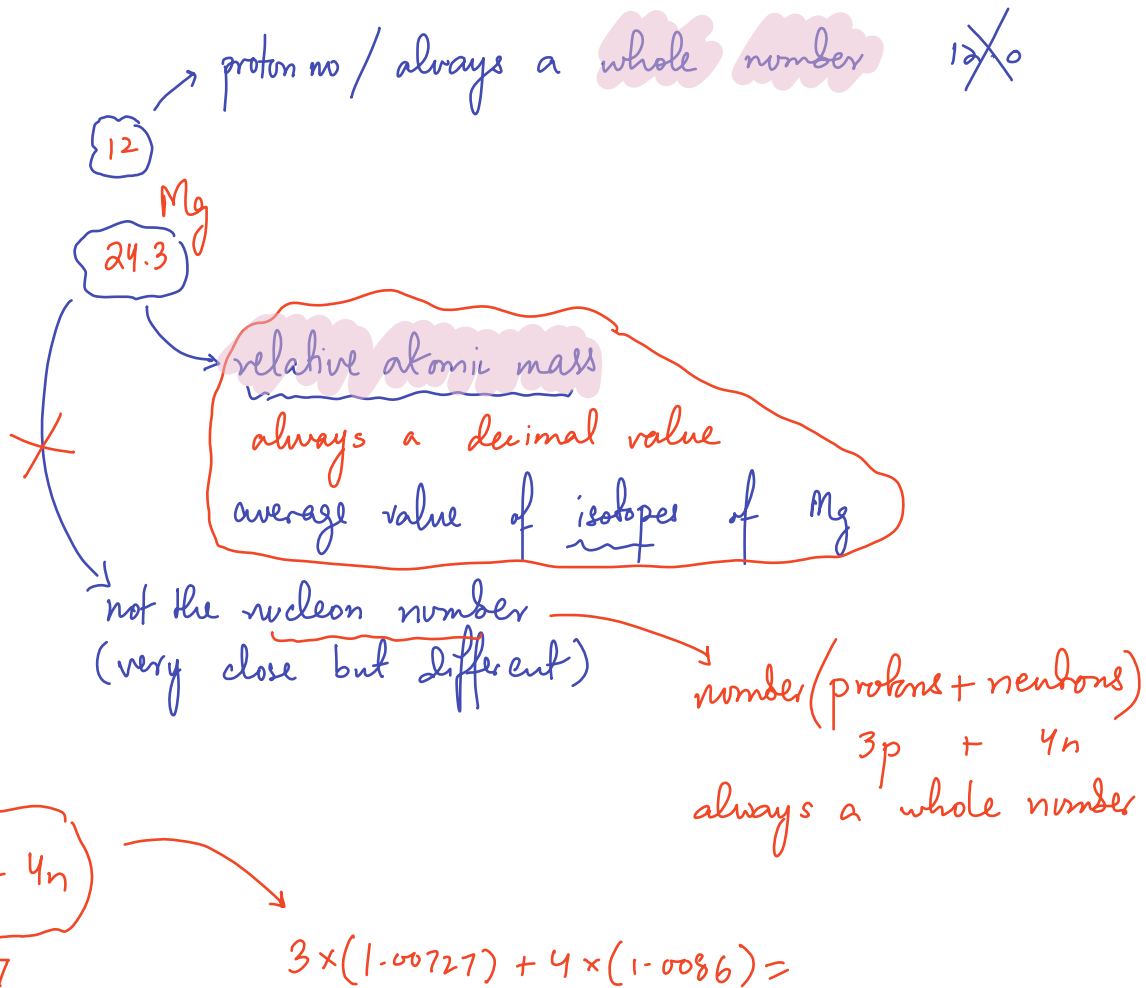 proton no / always a whole number 12.0
12
Mg
24.3
relative atomic mass
always a decimal value
average value of isotopes of Mg
not the nucleon number
(very close but different)
number(protons + neutrons)
3p + 4n
always a whole number
4n
7
3×(1.00727) + 4×(1.0086) =